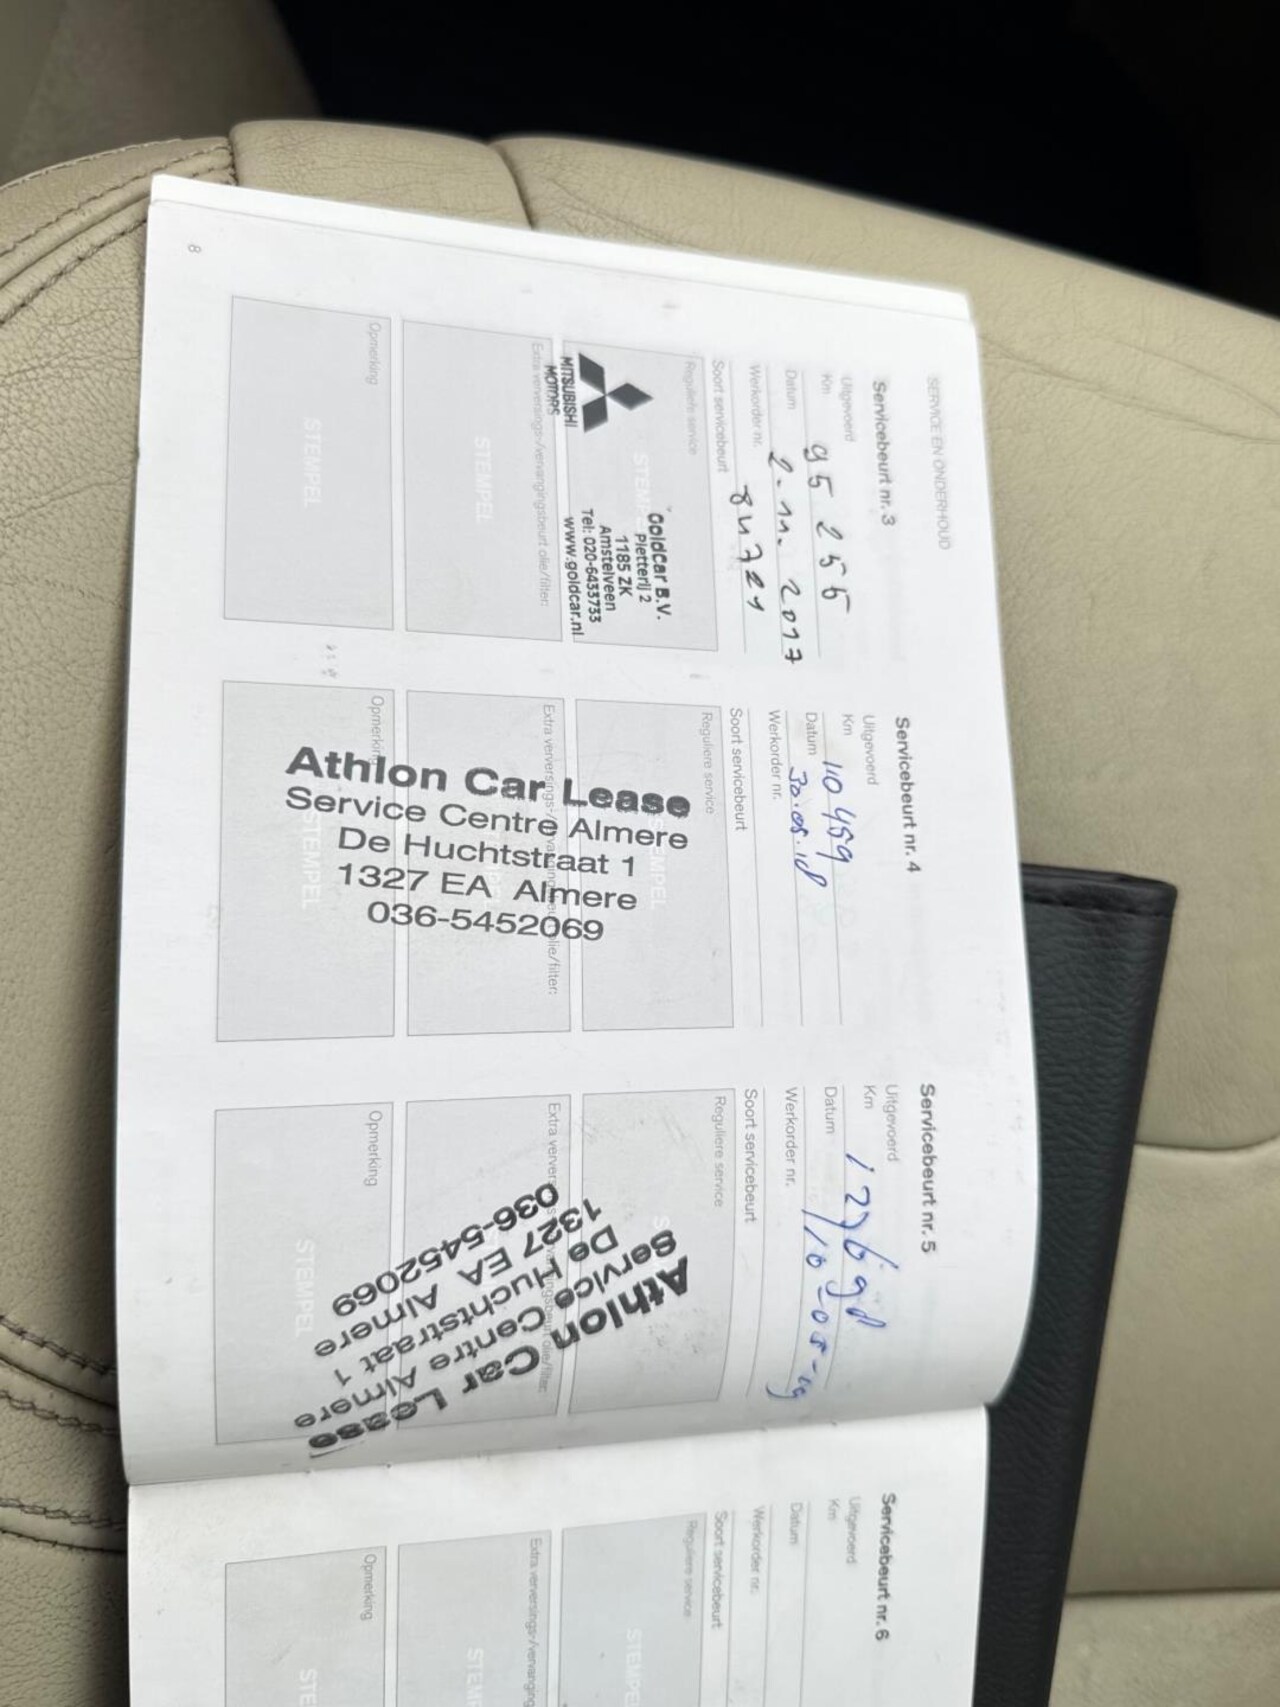 SERVICE EN ONDERHOUD
Servicebeurt nr. 3
Uitgevoerd
Km 95 255
Datum 2-11-2017
Werkorder nr. 84721
Soort servicebeurt
Reguliere service
STEMPEL
Goldcar B.V.
Pletterij 2
1185 ZK
Amstelveen
Tel: 020-6433733
www.goldcar.nl
MITSUBISHI
MOTORS
Extra verversings-/vervangingsbeurt olie/filter:
STEMPEL
Opmerking
STEMPEL
8
Servicebeurt nr. 4
Uitgevoerd
Km 110 459
Datum 30.05.18
Werkorder nr.
Soort servicebeurt
Reguliere service
STEMPEL
Extra verversings-/vervangingsbeurt olie/filter:
Opmerking
STEMPEL
Athlon Car Lease
Service Centre Almere
De Huchtstraat 1
1327 EA Almere
036-5452069
Servicebeurt nr. 5
Uitgevoerd
Km
Datum 10-05-19
Werkorder nr.
Soort servicebeurt
Reguliere service
Extra verversings-/vervangingsbeurt olie/filter:
Opmerking
STEMPEL
Athlon Car Lease
Service Centre Almere
De Huchtstraat 1
1327 EA Almere
036-5452069
Servicebeurt nr. 6
Uitgevoerd
Km
Datum
Werkorder nr.
Soort servicebeurt
Reguliere service
STEMPEL
Extra verversings-/vervanging
STEM
Opmerking
STEM